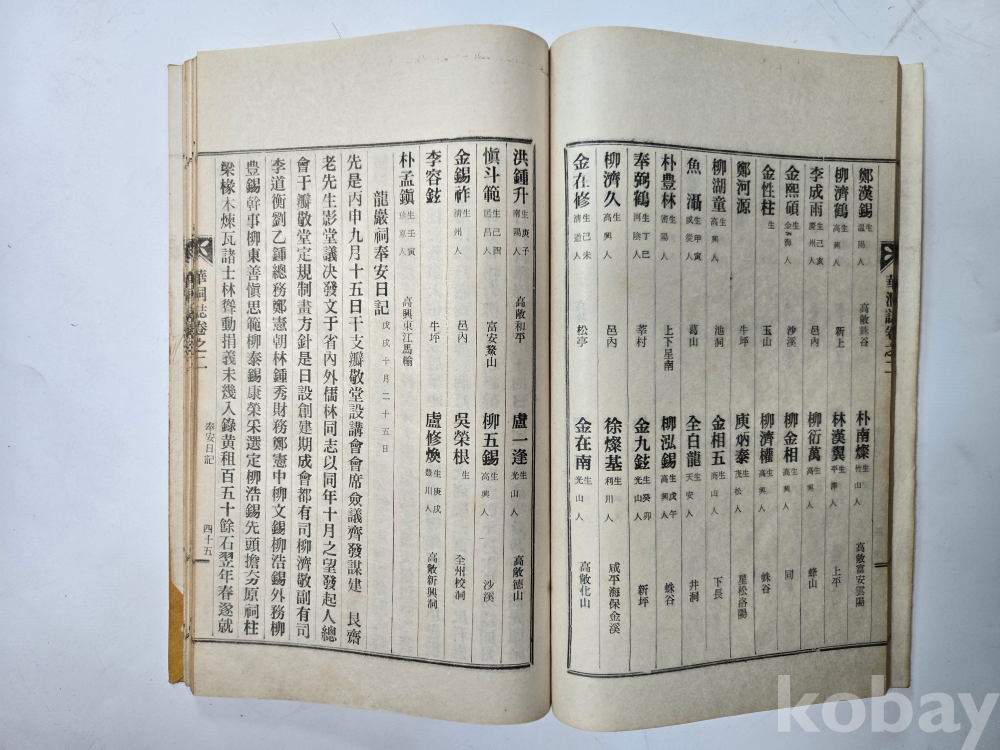 鄭漢錫 生 溫陽人 高敞 谷 朴南燦 生 竹山人 高敞富安雲陽
柳濟鶴 生 高興人 新上 林漢翼 生 平澤人 上平
李成雨 生己亥 慶州人 邑內 柳衍萬 生 高興人 蜂山
金熙碩 生 金海人 沙溪 柳金相 生 高興人 同
金性柱 生 玉山 柳濟權 生 高興人 蛛谷
鄭河源 牛坪 庾炳泰 生 茂松人 星松洛陽
柳湖童 生 高興人 池洞 金相五 生 商山人 下長
魚滆 生甲寅 咸從人 葛山 全白龍 生 天安人 井洞
朴豊林 生 密陽人 上下星南 柳泓錫 生戊午 高興人 蛛谷
奉弼鶴 生丁巳 河陰人 莘村 金九鉉 生癸卯 光山人 新坪
柳濟久 生 高興人 邑內 徐燦基 生 利川人 咸平海保金溪
金在修 生己未 清道人 松亭 金在南 生 光山人 高敞化山
洪鍾升 生庚子 南陽人 高敞和平 盧一逢 生 光山人 高敞德山
愼斗範 生己酉 居昌人 富安鰲山 柳五錫 生 高興人 沙溪
金錫祚 生 清州人 邑內 吳榮根 生 全州校洞
李容鉉 牛坪 盧修煥 生庚戌 豊川人 高敞新興洞
朴孟鎭 生壬寅 人 高興東江馬輪
龍嚴祠奉安日記 戊戌十月二十五日
先是丙申九月十五日干支瓣敬堂設講會會席僉議齊發謀建 艮齋
老先生影堂議决發文于省內外儒林同志以同年十月之望發起人總
會于瓣敬堂定規制畫方針是日設創建期成會都有司柳濟敬副有司
李道衡劉乙鍾總務鄭憲朝林鍾秀財務鄭憲中柳文錫柳浩錫外務柳
豊錫幹事柳東善愼思範柳泰錫康榮采選定柳浩錫先頭擔夯原祠柱
樑椽木煉瓦諸士林聳動捐義未幾入錄黃租百五十餘石翌年春遂就
祠誌卷之二 奉安日記 四十五
kobay